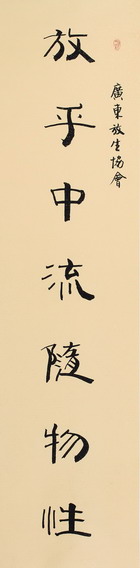 廣東放生協會
放乎中流隨物性